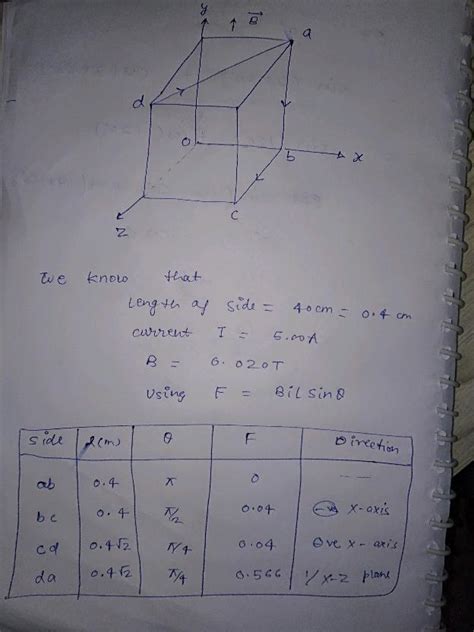 y
B
a
d
O
b
x
c
Z
We know that
Length of side = 40cm = 0.4 cm
current I = 5.00A
B = 0.020T
Using F = Bil Sinθ
Side l(m) θ F Direction
ab 0.4 π 0 —
bc 0.4 π/2 0.04 -ve X-axis
cd 0.4√2 π/4 0.04 ⊕ve x-axis
da 0.4√2 π/4 0.566 1/ x-z plane